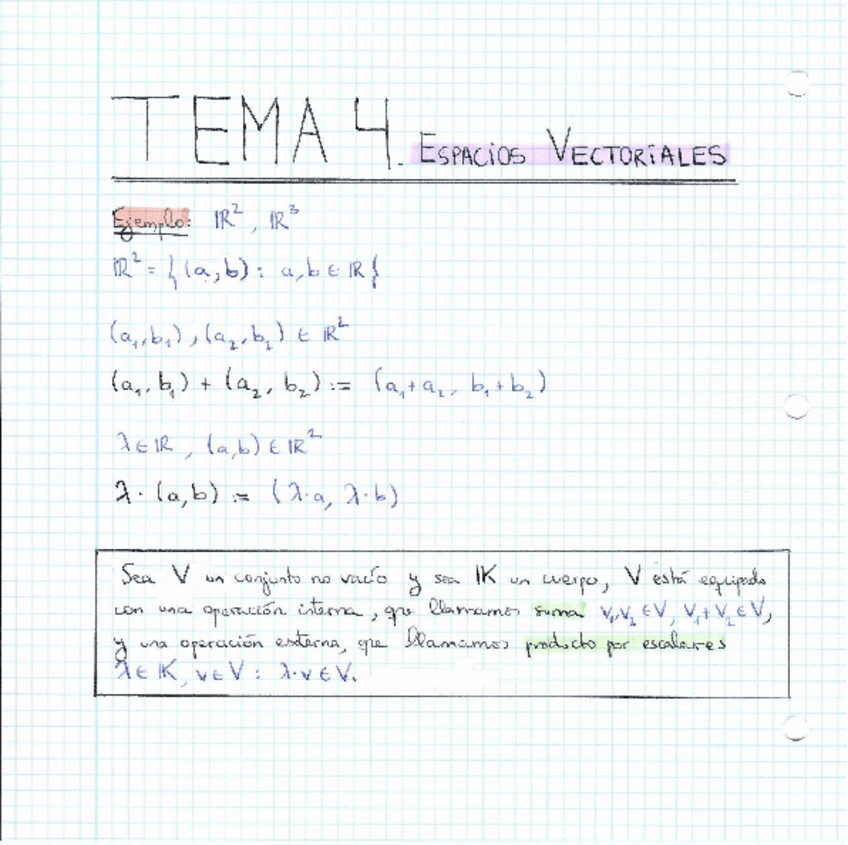 TEMA 4. ESPACIOS VECTORIALES
Ejemplo: ℝ², ℝ³
ℝ² = {(a,b) : a,b ∈ ℝ}
(a₁,b₁), (a₂,b₂) ∈ ℝ²
(a₁,b₁) + (a₂,b₂) := (a₁+a₂, b₁+b₂)
λ ∈ ℝ, (a,b) ∈ ℝ²
λ·(a,b) := (λ·a, λ·b)
Sea V un conjunto no vacío y sea 𝕂 un cuerpo, V está equipado
con una operación interna, que llamamos suma v₁,v₂ ∈ V, v₁+v₂ ∈ V,
y una operación externa, que llamamos producto por escalares
λ ∈ 𝕂, v ∈ V : λ·v ∈ V.